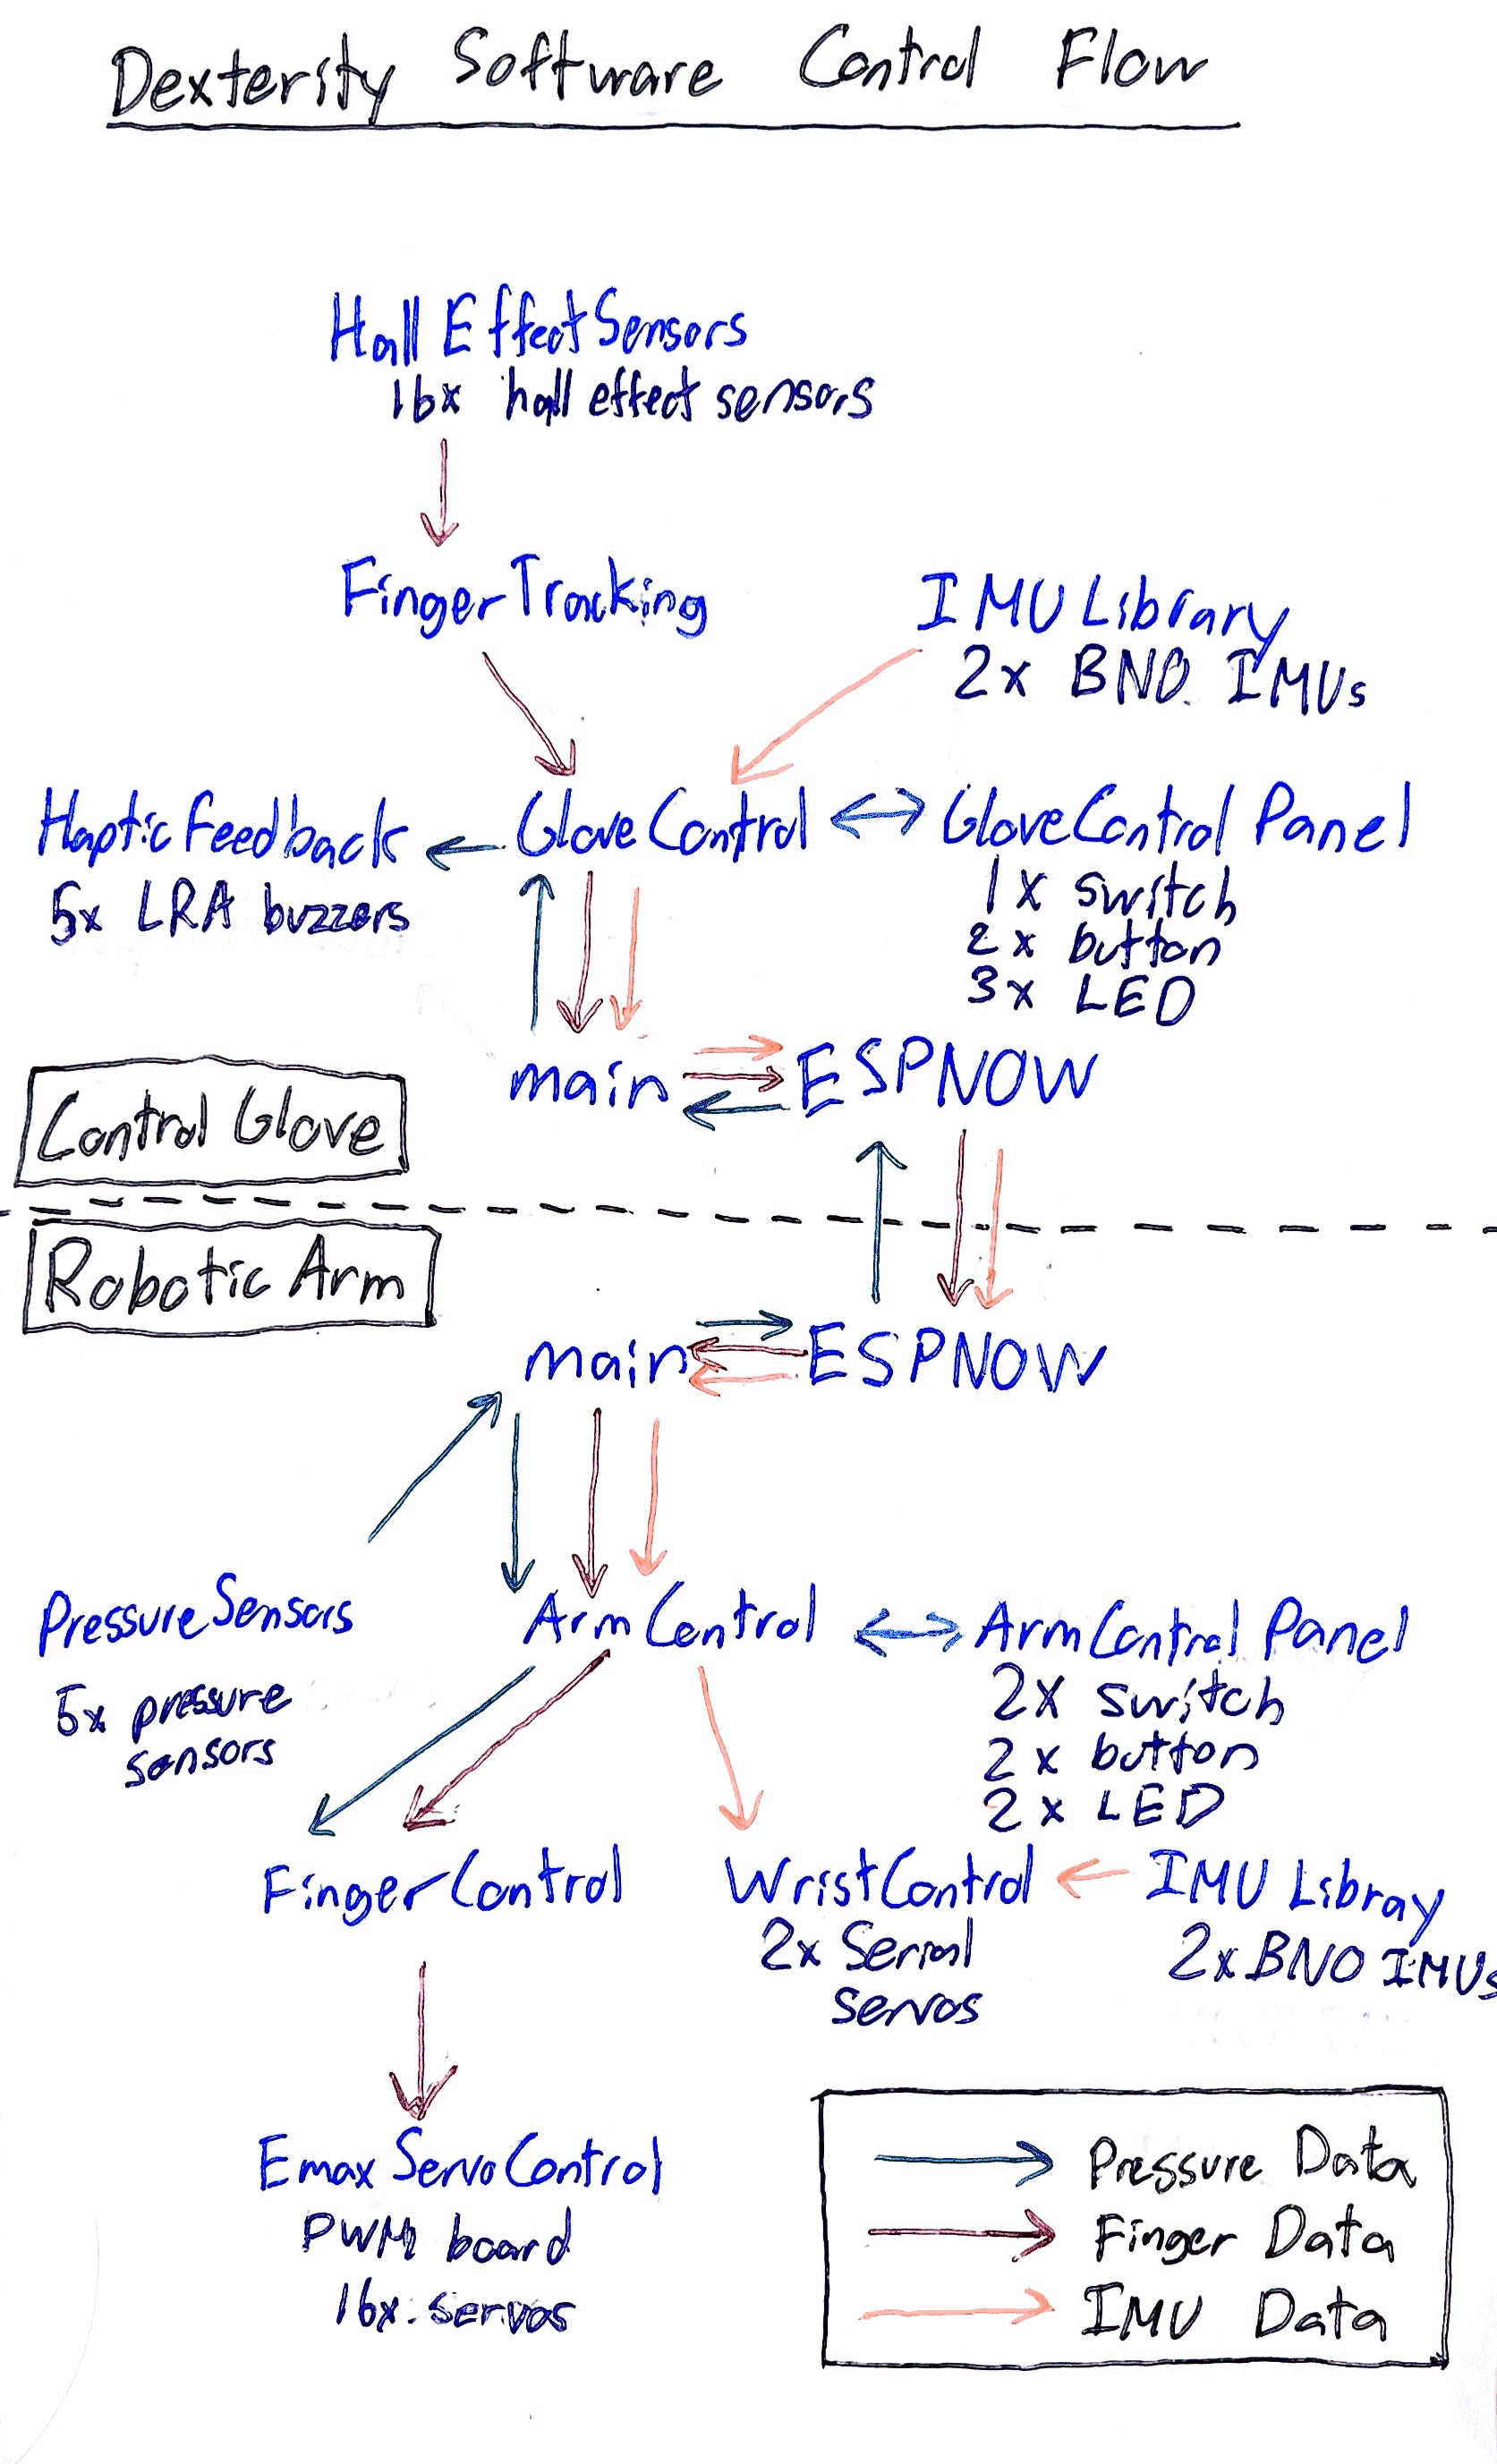 Dexterity Software Control Flow
HallEffectSensors
16x hall effect sensors
FingerTracking
IMU Library
2x BNO IMUs
HapticFeedback
5x LRA buzzers
GloveControl
GloveControl Panel
1x switch
2x button
3x LED
main
ESPNOW
Control Glove
Robotic Arm
main
ESPNOW
PressureSensors
5x pressure
sensors
ArmControl
ArmControl Panel
2x switch
2x button
2x LED
FingerControl
WristControl
2x Serial
servos
IMU Libray
2x BNO IMUs
Emax ServoControl
PWM board
16x servos
Pressure Data
Finger Data
IMU Data